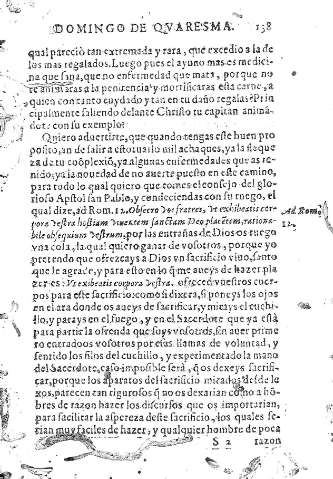 DOMINGO DE QVARESMA. 138
qual pareciò tan extremada y rara, que excedio a la de
los mas regalados. Luego pues el ayuno mas es medici
na que sana, que no enfermedad que mata, porque no
te animaras a la penitencia y mortificaras esta carne, a
quien con tanto cuydado y tan en tu daño regalas? Prin
cipalmente saliendo delante Christo tu capitan anima
dote con su exemplo?
Quiero advertirte, que quando tengas este buen pro
posito, an de salir a estoruarlo mil achaques, ya la flaque
za de tu cõplexiõ, ya algunas enfermedades que as te-
nido; ya la nouedad de no auerte puesto en este camino,
para todo lo qual quiero que tomes el consejo del glo-
rioso Apostol san Pablo, y condeciendas con su ruego, el
qual dize, ad Rom. 12. Obsecro vos fratres, vt exhibeatis cor
pora vestra hostiam viuentem sanctam Deo placẽtem, rationa-
bile obsequium vestrum, por las entrañas de Dios os ruego
vna cosa, la qual quiero ganar de vosotros, porque yo
pretendo que ofrezcays a Dios vn sacrificio viuo, santo
que le agrade, y para esto en lo q̃ me aueys de hazer pla
zer es: Vt exhibeatis corpora vestra. ofreced vuestros cuer-
pos para este sacrificio: como si dixera, si poneys los ojos
en el ara donde os aueys de sacrificar, y mirays el cuchi-
llo, y parays en el fuego, y en el Sacerdote que ya està
para partir la ofrenda que soys vosotros, sin auer prime
ro entrado os vosotros por essas llamas de voluntad, y
sentido los filos del cuchillo, y experimentado la mano
del Sacerdote, caso impossible serà, q̃ os dexeys sacrifi-
car, porque los aparatos del sacrificio mirados desde le
xos, parecen tan rigurosos q̃ no os dexarian como a hõ-
bres de razon hazer los discursos que os importarian,
para facilitar la aspereza deste sacrificio, los quales se-
rian muy faciles de hazer, y qualquier hombre de poca
S 2 razon
Ad Rom.
12.